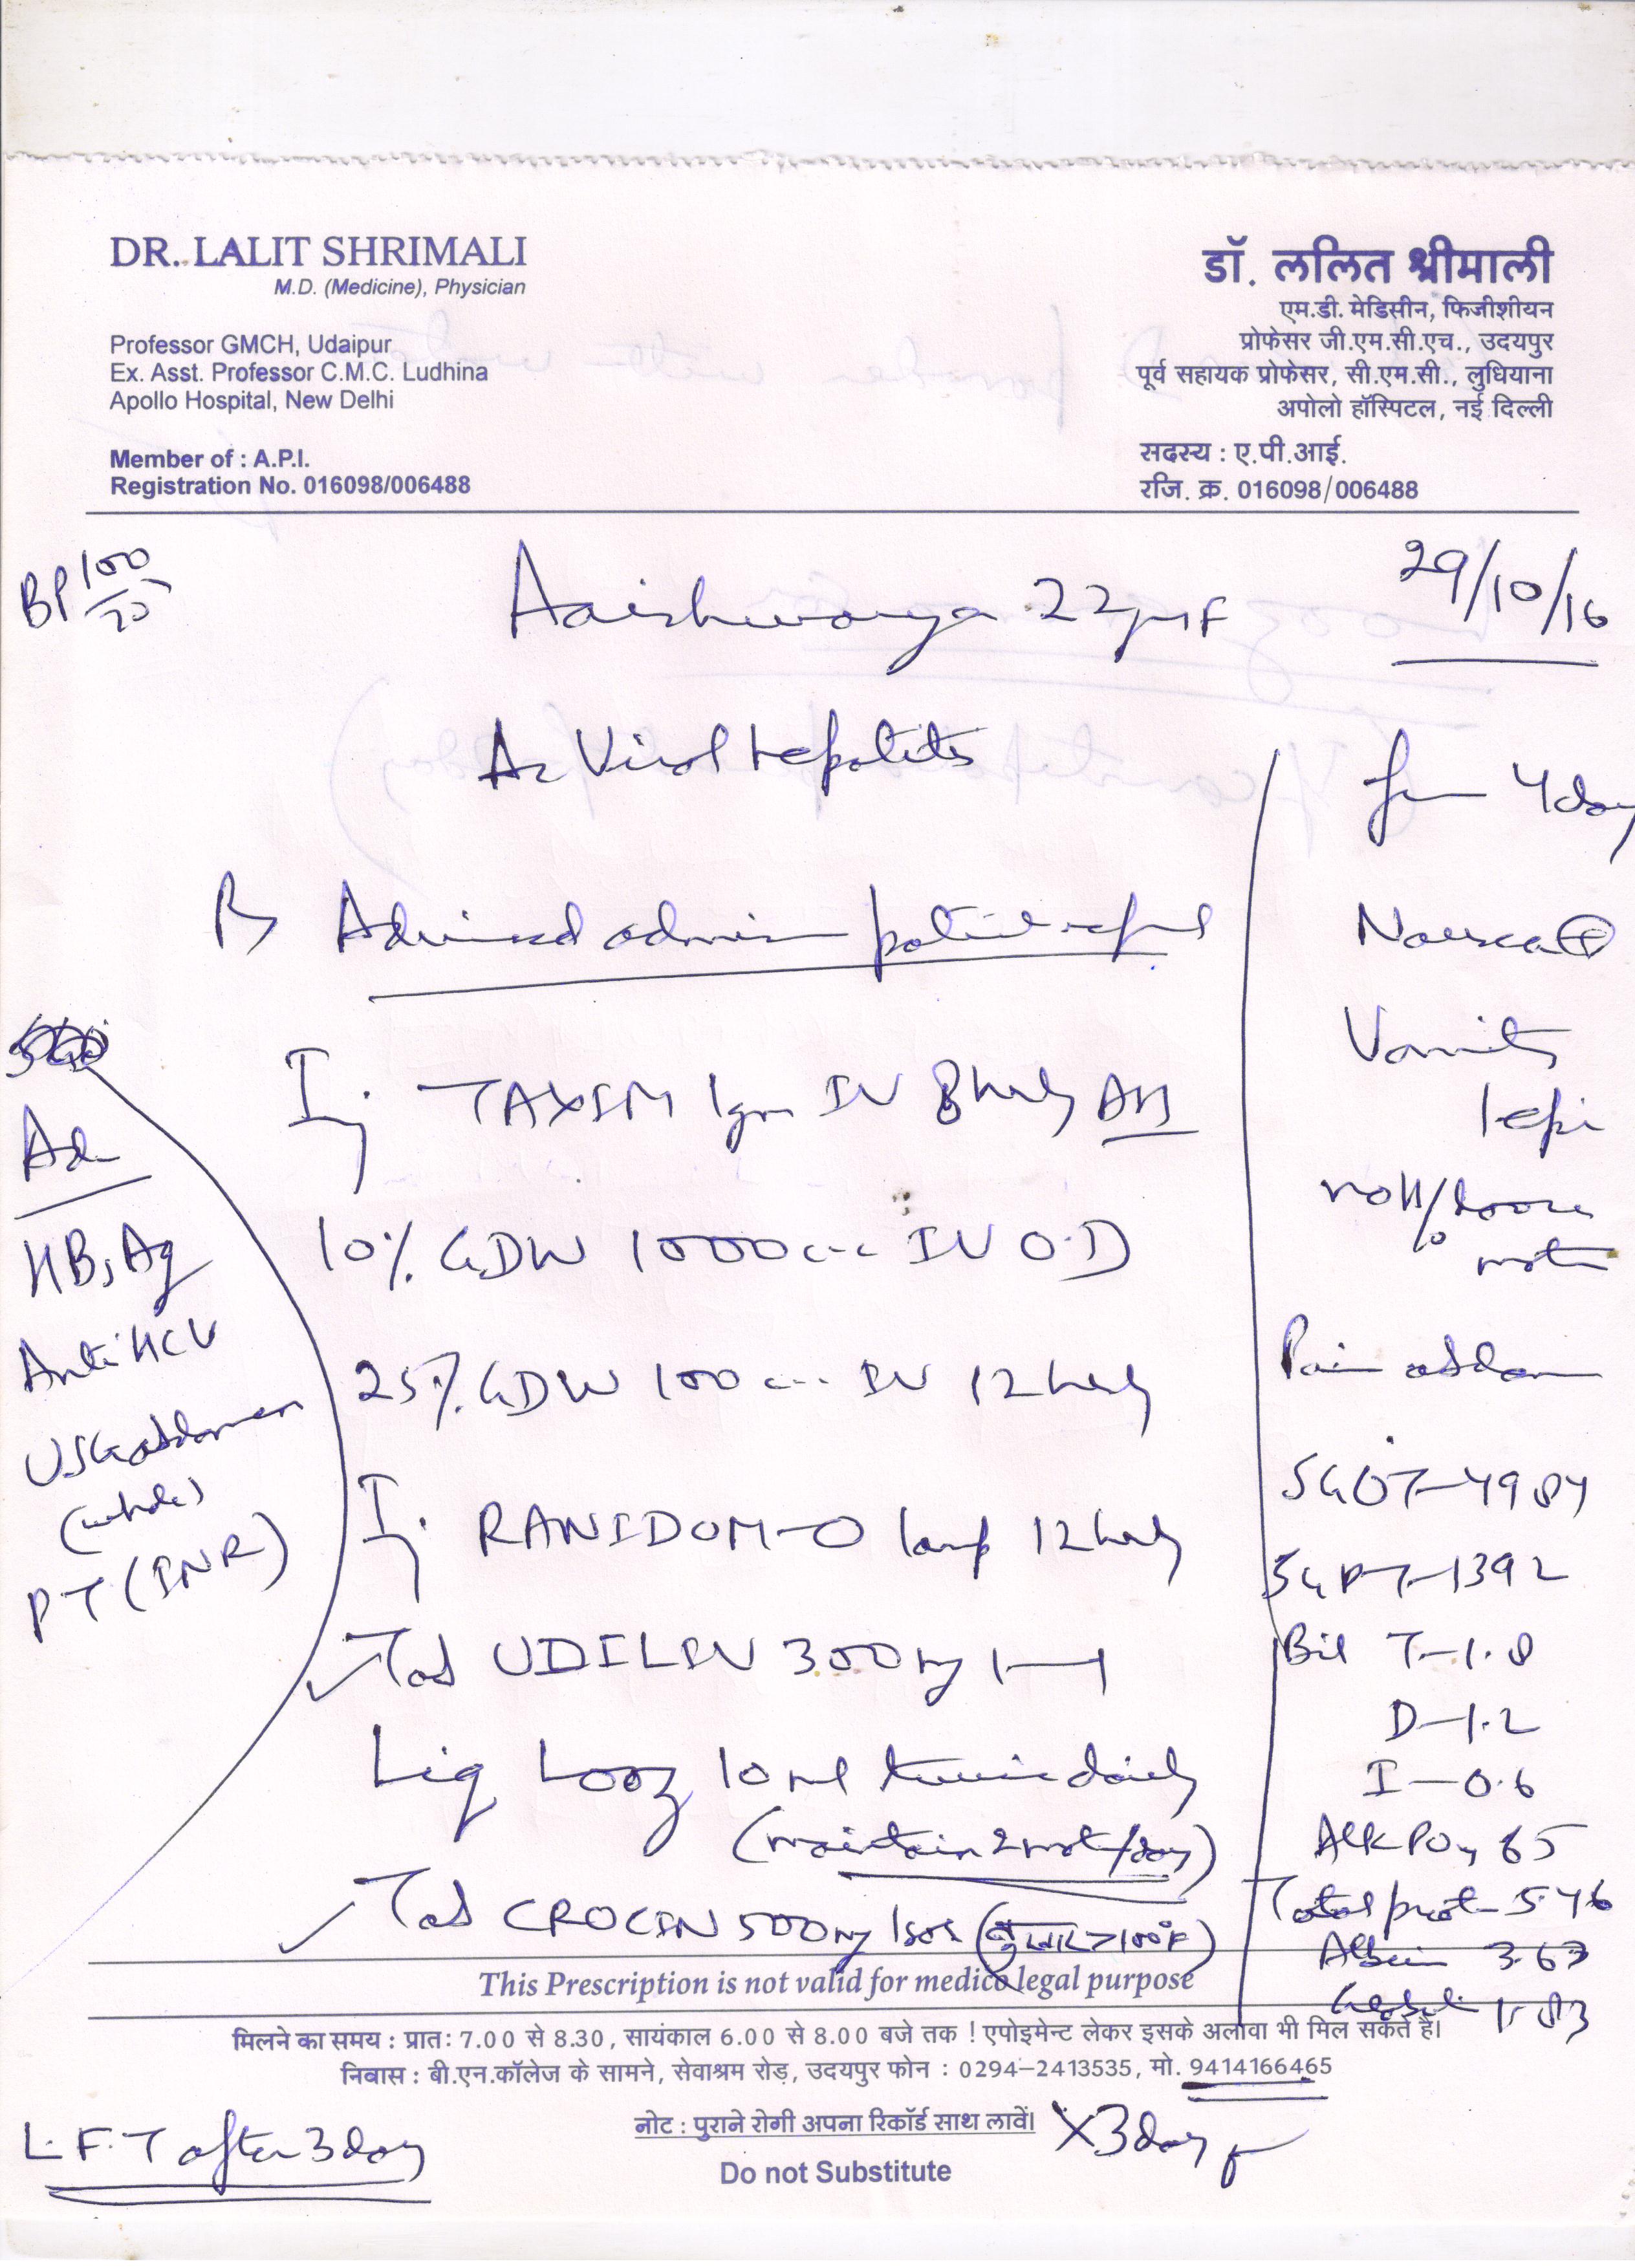 DR. LALIT SHRIMALI
M.D. (Medicine), Physician
Professor GMCH, Udaipur
Ex. Asst. Professor C.M.C. Ludhina
Apollo Hospital, New Delhi
Member of : A.P.I.
Registration No. 016098/006488
डॉ. ललित श्रीमाली
एम.डी. मेडिसीन, फिजीशीयन
प्रोफेसर जी.एम.सी.एच., उदयपुर
पूर्व सहायक प्रोफेसर, सी.एम.सी., लुधियाना
अपोलो हॉस्पिटल, नई दिल्ली
सदस्य : ए.पी.आई.
रजि. क्र. 016098/006488
BP 100/70
Aaishwarya 22yr/F
29/10/16
Ac Viral Hepatitis
Adviced admission patient refused
Inj TAXIM 1gm IV 8hrly AST
10% GDW 1000cc IV O.D
25% GDW 100cc IV 12hrly
Inj RANIDOM-O 1amp 12hrly
Tab UDILIV 300mg 1—1
Liq Looz 10ml twice daily
(maintain 2 mot/day)
Tab CROCIN 500mg 1sos (बुखार >100°F)
Adv
HBsAg
Anti HCV
USG abdomen
(whole)
PT (INR)
4 day
Nausea ⊕
Vomiting
loose
motion
Pain abdomen
SGOT-4984
SGPT-1392
Bil T-1.8
D-1.2
I-0.6
Alk PO4 65
Total prot 5.46
Albumin 3.63
Globulin 1.83
This Prescription is not valid for medico legal purpose
मिलने का समय : प्रातः 7.00 से 8.30, सायंकाल 6.00 से 8.00 बजे तक ! एपोइमेन्ट लेकर इसके अलावा भी मिल सकते हैं।
निवास : बी.एन.कॉलेज के सामने, सेवाश्रम रोड़, उदयपुर फोन : 0294-2413535, मो. 9414166465
नोट : पुराने रोगी अपना रिकॉर्ड साथ लावें।
X3day
L.F.T after 3 day
Do not Substitute